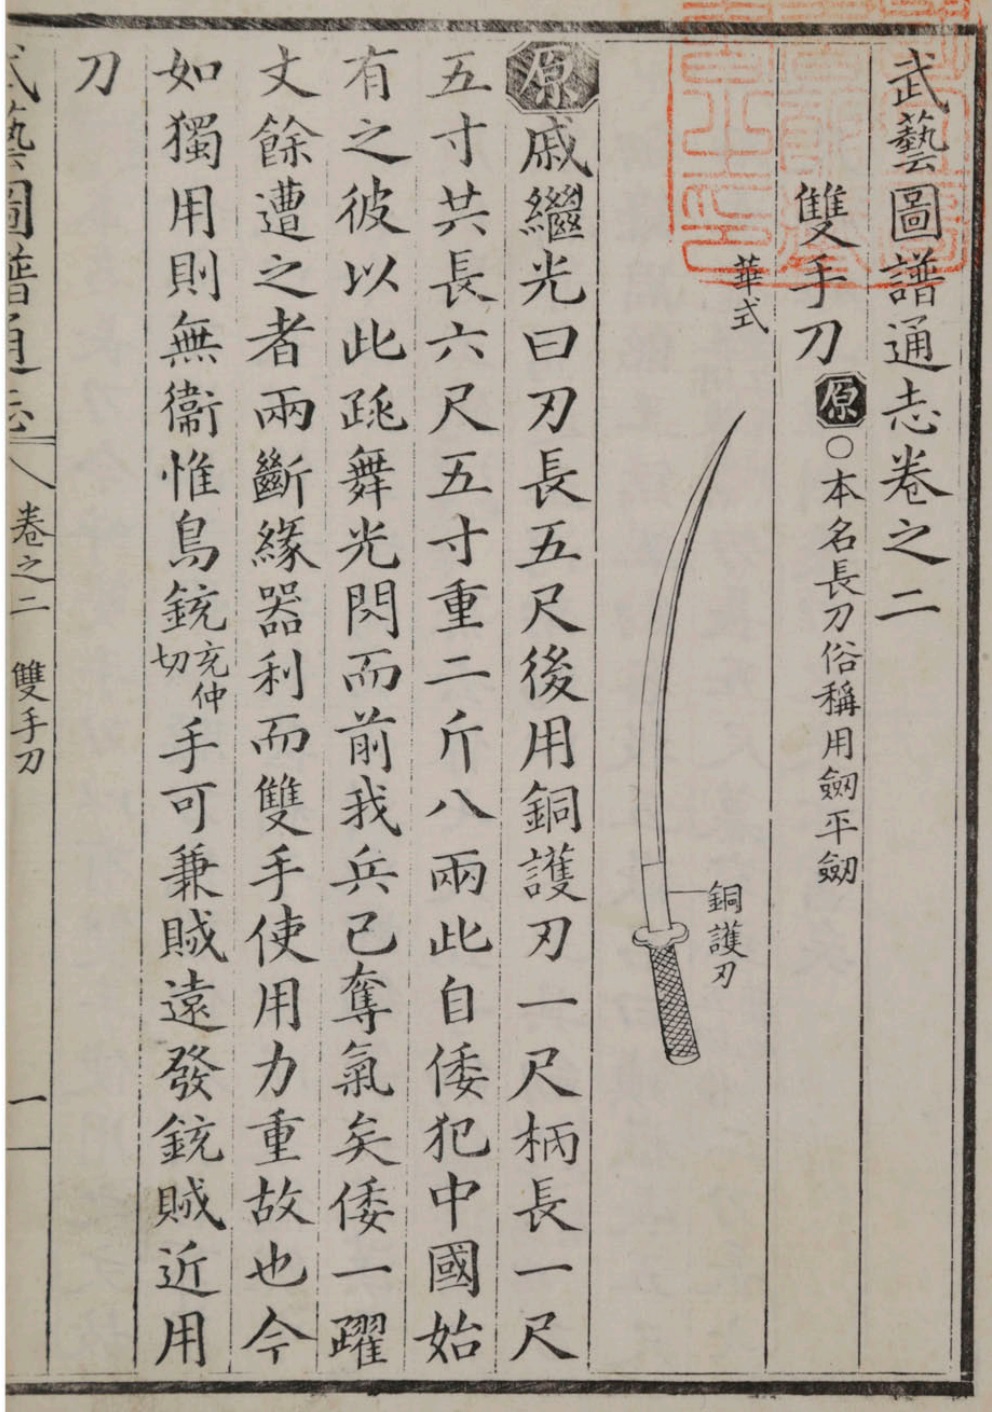 武藝圖譜通志卷之二
雙手刀 原 ○本名長刀俗稱用劒平劒
華式
銅護刃
原 戚繼光曰刃長五尺後用銅護刃一尺柄長一尺
五寸共長六尺五寸重二斤八兩此自倭犯中國始
有之彼以此跳舞光閃而前我兵已奪氣矣倭一躍
丈餘遭之者兩斷緣器利而雙手使用力重故也今
如獨用則無衞惟鳥銃充仲切手可兼賊遠發銃賊近用
刀
武藝圖譜通志 卷之二 雙手刀 一